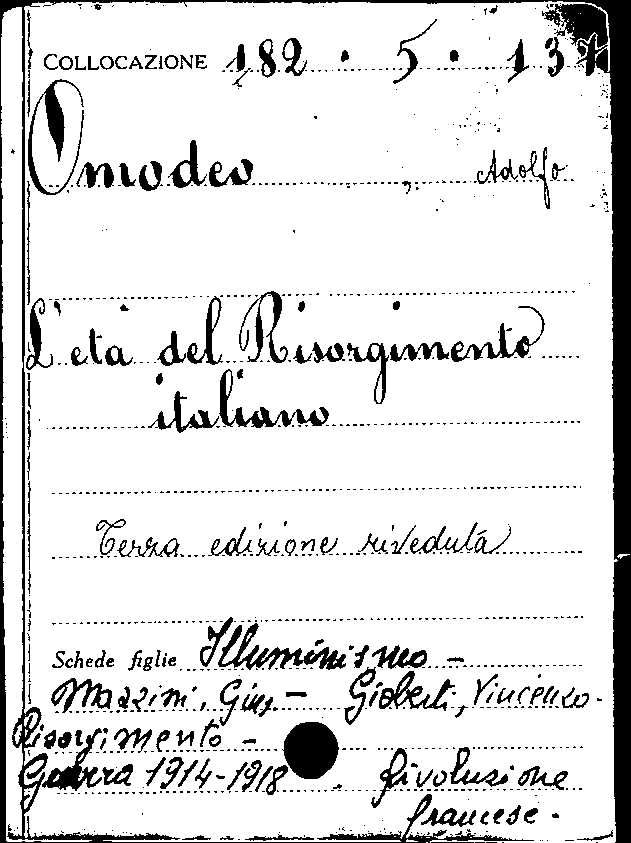 COLLOCAZIONE 182 . 5 . 137
Omodeo, Adolfo
L'età del Risorgimento
italiano
Terza edizione riveduta
Schede figlie Illuminismo -
Mazzini, Gius. - Gioberti, Vincenzo -
Risorgimento -
Guerra 1914-1918. Rivoluzione
francese -